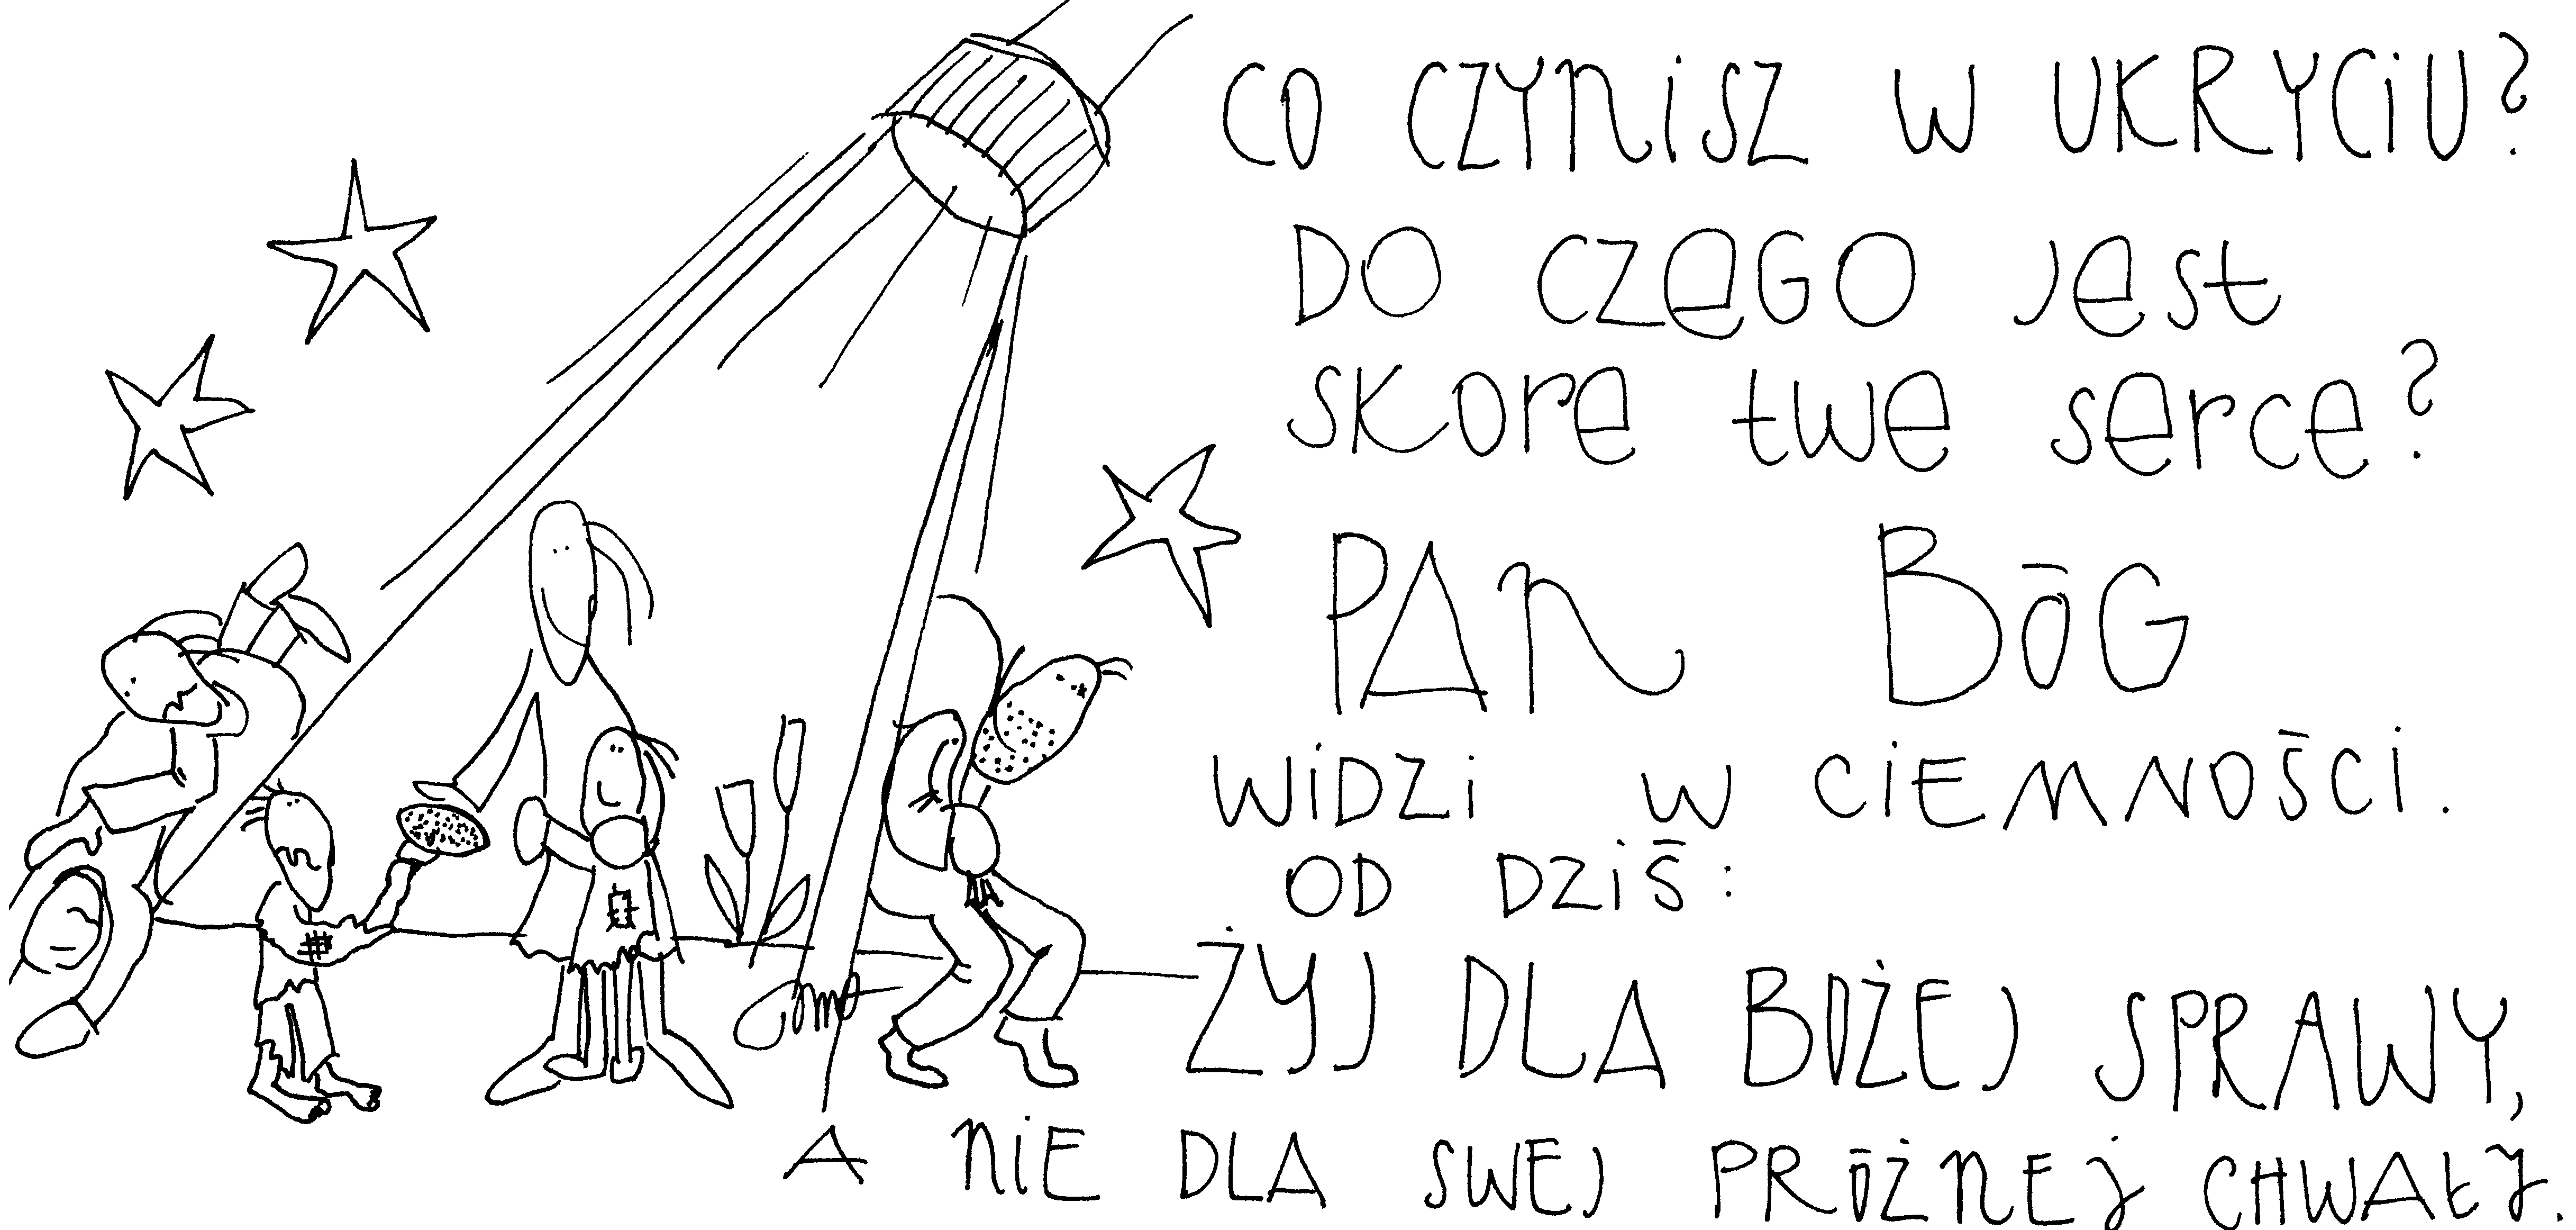 CO CZYNISZ W UKRYCIU?
DO CZEGO JEST
SKORE TWE SERCE?
PAN BÓG
WIDZI W CIEMNOŚCI.
OD DZIŚ:
ŻYJ DLA BOŻEJ SPRAWY,
A NIE DLA SWEJ PRÓŻNEJ CHWAŁY.